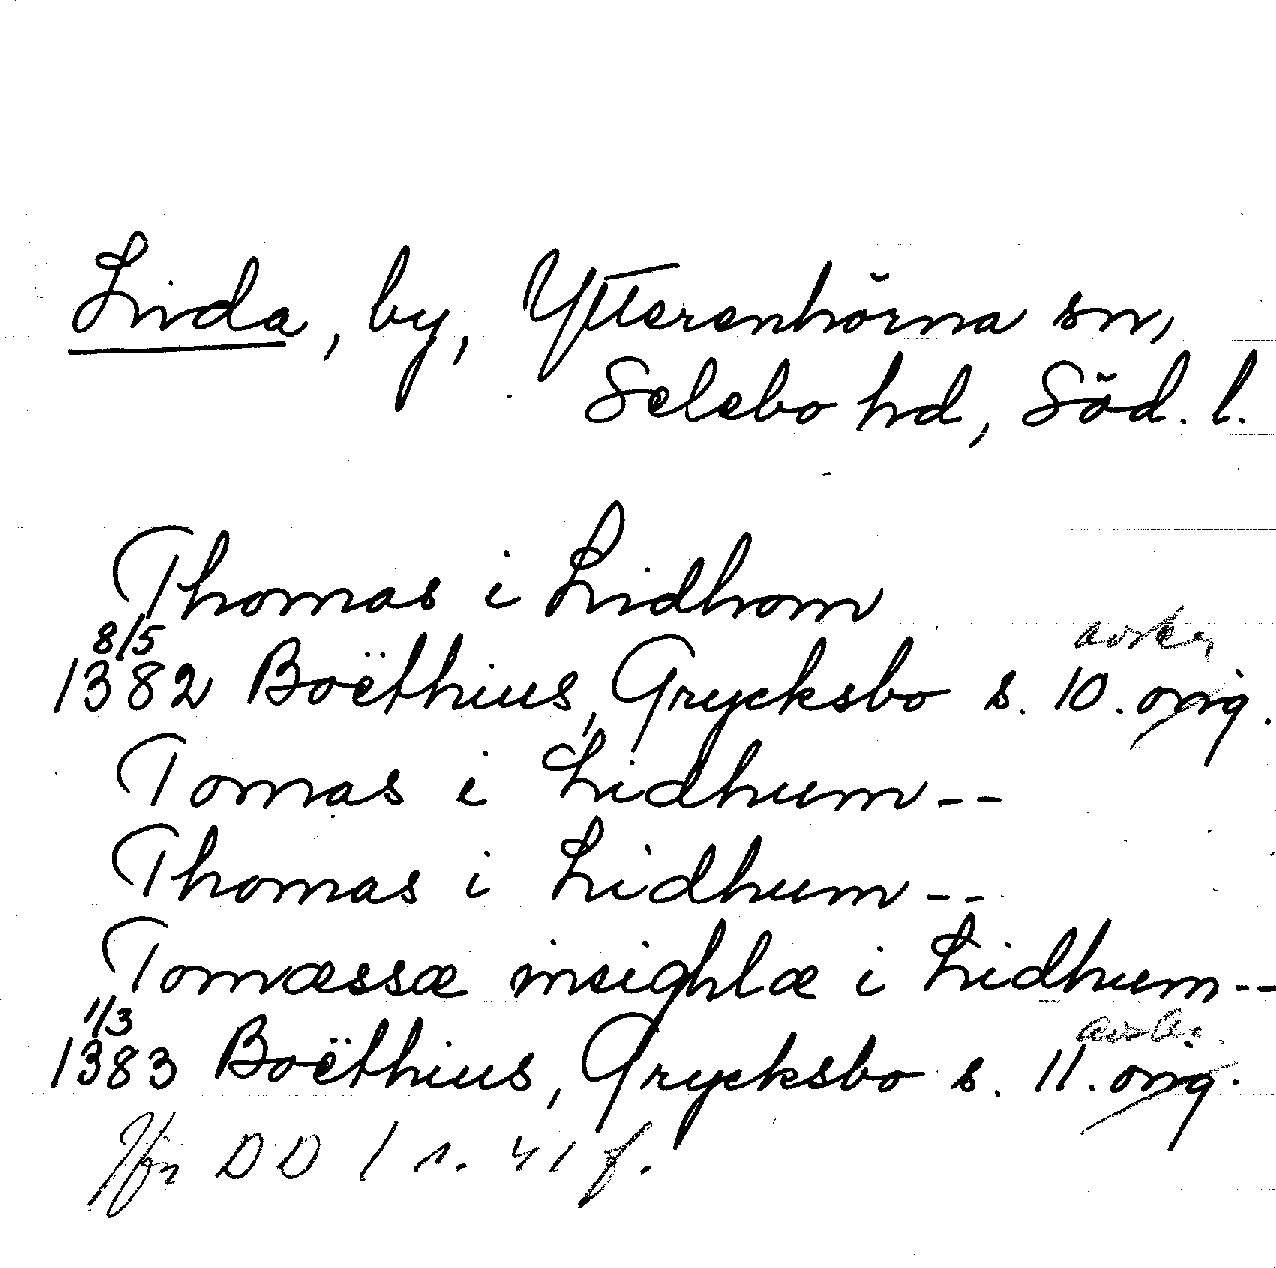 Linda, by, Ytterenhörna sn,
Selebo hd, Söd. l.
Thomas i Lidhom
8/5 avskr
1382 Boëthius, Grycksbo s. 10. orig.
Tomas i Lidhum--
Thomas i Lidhum--
Tomæssæ insighlæ i Lidhum--
1/3
1383 Boëthius, Grycksbo s. 11. orig.
Jfr DD 1 s. 41 f.